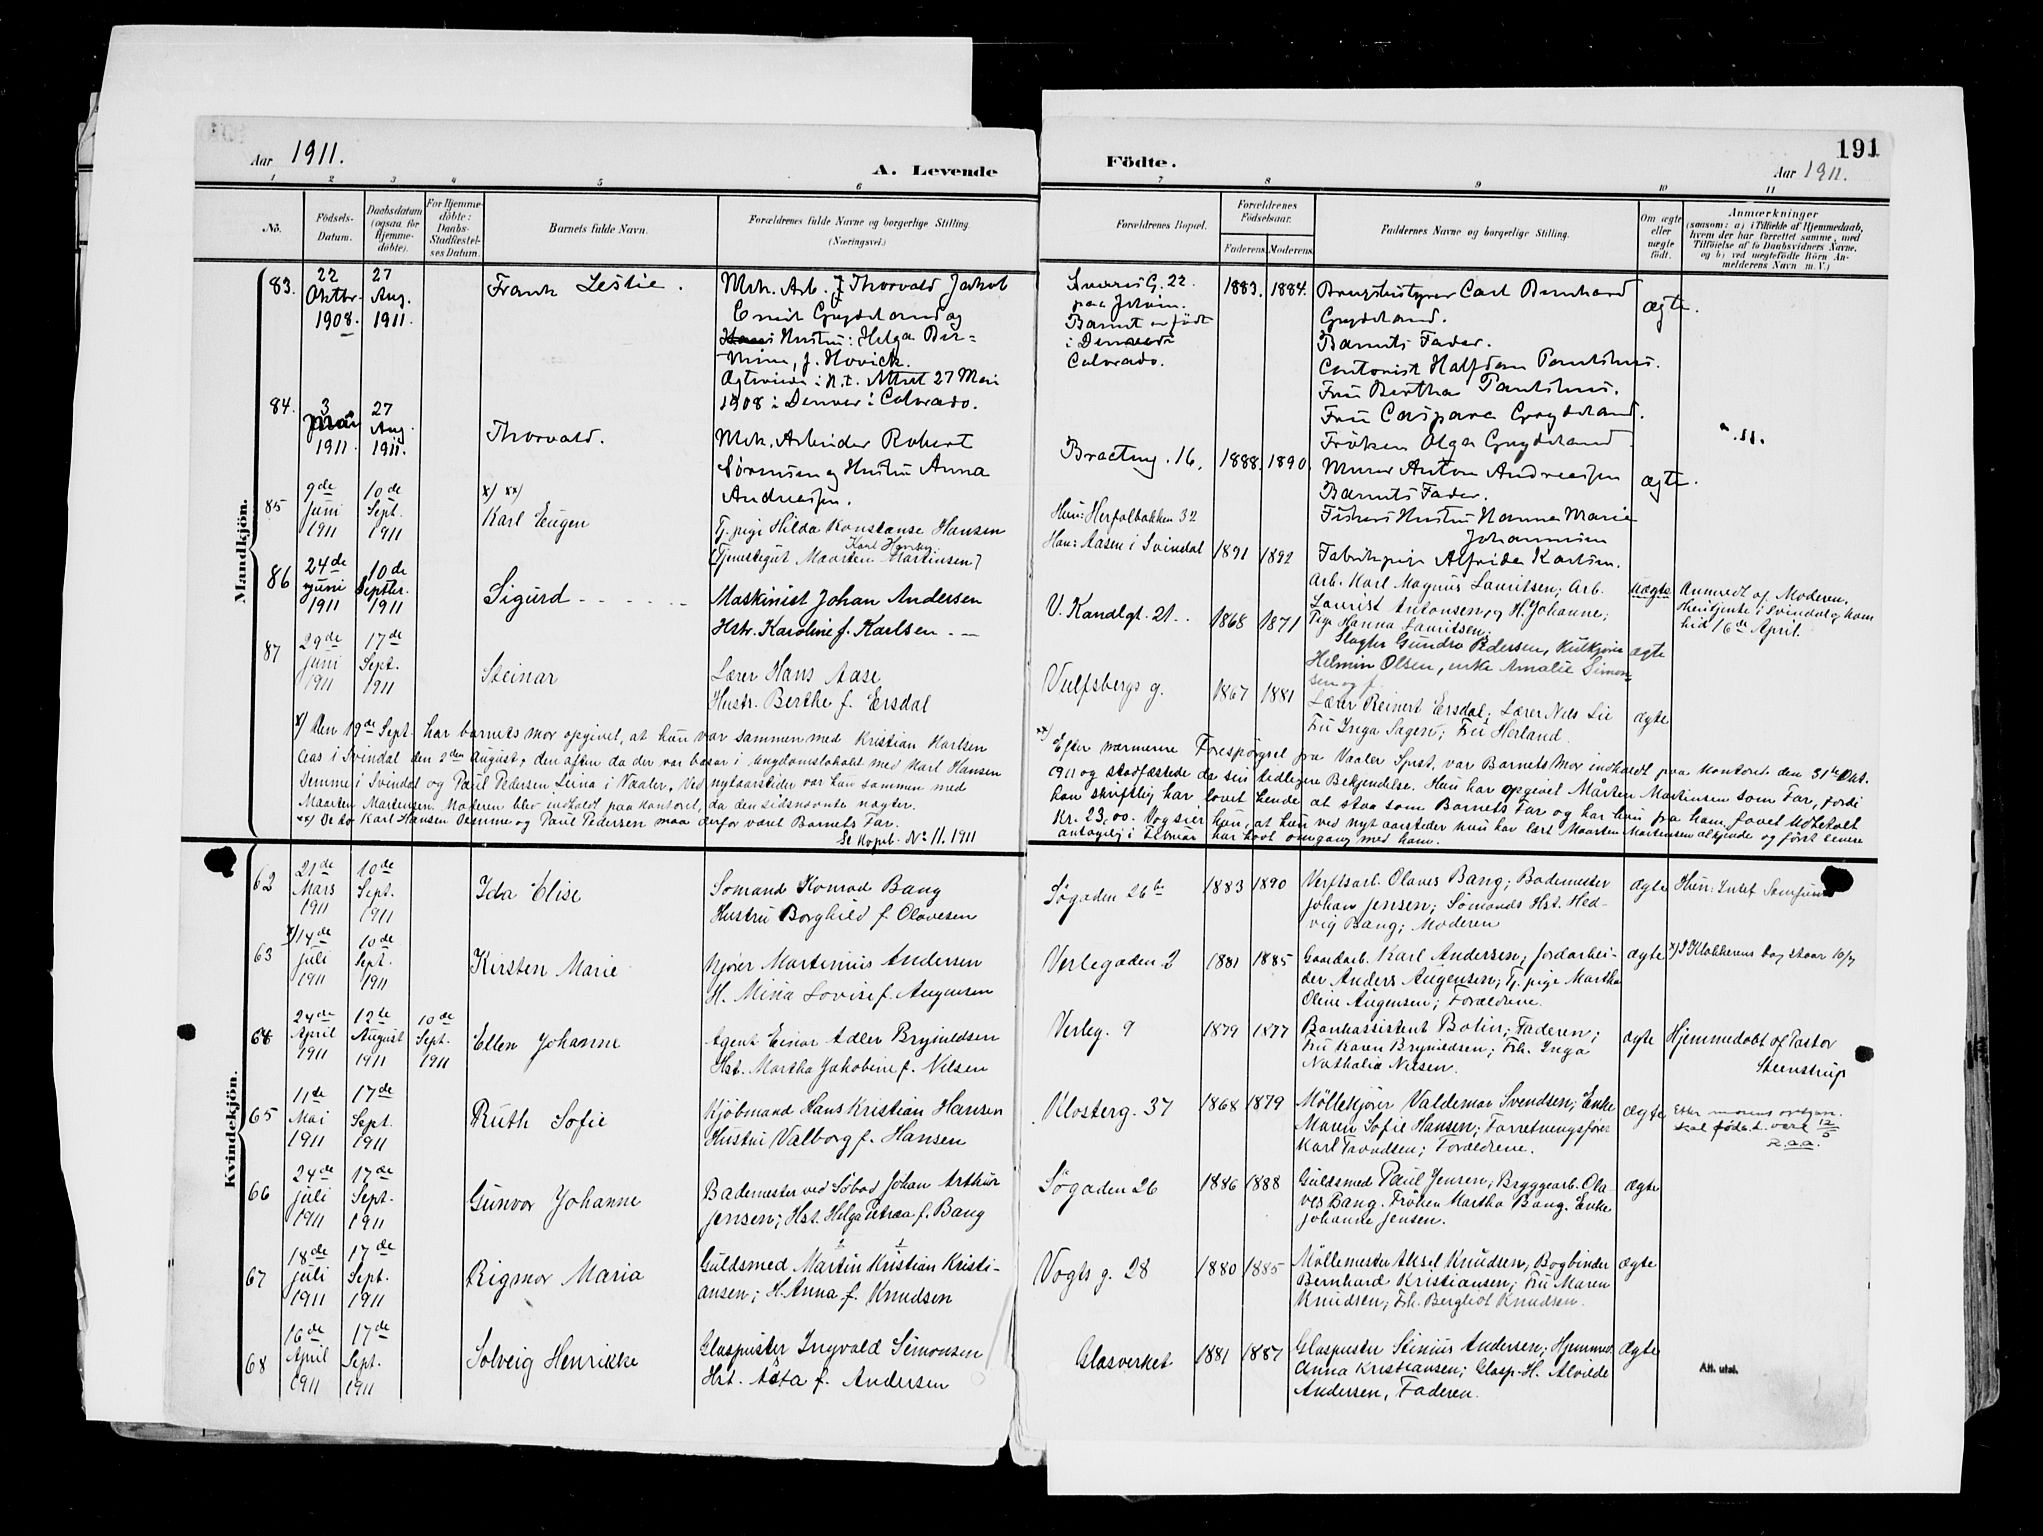 Aar 1911.
A. Levende
Födte.
191
Aar 1911.
1 2 3 4 5 6 7 8 9 10 11
No.
Födsels-
Datum.
Daabsdatum
(ogsaa for
Hjemme-
döbte).
For Hjemme-
döbte:
Daabs-
Stadfæstel-
ses Datum.
Barnets fulde Navn.
Forældrenes fulde Navne og borgerlige Stilling.
(Næringsvei.)
Forældrenes Bopæl.
Forældrenes
Födselsaar.
Faderens. Moderens.
Faddernes Navne og borgerlige Stilling.
Om ægte
eller
uægte
födt.
Anmærkninger
(saasom: a) i Tilfælde af Hjemmedaab,
hvem der har forrettet samme, med
Tilföielse af to Daabsvidners Navne,
og b) ved uegtefödte Börn An-
melderens Navn m. V.)
Mandkjön.
83.
22
Oktbr.
1908.
27
Aug.
1911.
Frank Leslie.
Mek. Arb. Thorvald Jakob
Emil Grydeland og
Hustru: Helga Ber-
mine, f. Hovick.
1908 i Denver i Colorado.
G. 22.
Barnet er født
i Denver
Colorado.
1883. 1884.
Carl Bernhard
Grydeland.
Barnets Fader.
Fru Bertha
Fru Caspara Grydeland.
Frøken Olga Grydeland.
ægte.
84.
3
Mai
1911.
27
Aug.
1911.
Thorvald.
Mek. Arbeider Robert
Sørensen og Hustru Anna
Andreassen.
16.
1888. 1890.
Murer Anton Andreassen
Barnets Fader.
Fiskers Hustru Hanna Marie
Johannesen
Fabrikpige Alfrida Karlsen.
ægte.
85
9de
Juni
1911
10de
Sept.
1911
x) xx)
Karl Eugen
Tj. pige Hilda Konstanse Hansen
Karl Hansen
(Tjenestegut Maarten Martinsen)
Hun: Herfølbakken 32
Han: Aasen i Svindal
1891 1892
Arb. Karl Magnus Lauritsen; Arb.
Laurist Antonsen og H. Johanne;
Pige Hanna Lauritsen;
uægte
Anmeldt af Moderen.
i Svindal og kom
hid 16de April.
86
24de
Juni
1911
10de
Septbr.
1911
Sigurd - - - - - -
Maskinist Johan Andersen
Hstr. Karoline f. Karlsen - -
V. Kandlgt. 21. .
1868 1871
Slagter Gundro Pedersen, Kulkjører
Helmin Olsen, enke Amalie Simon-
sen og f.
ægte
87
29de
Juni
1911
17de
Sept.
1911
Steinar
Lærer Hans Aase
Hustr. Berthe f. Ersdal
Vulfsbergs g.
1867 1881
Lærer Reinert Ersdal; Lærer Nils Lie
Fru Inga Sagen; Fru Herland
ægte
x) Den 19de Sept. har barnets mor opgivet, at hun var sammen med Kristian Karlsen
Aas i Svindal den 2den August, den aften da der var basar i ungdomslokalet med Karl Hansen
Demme i Svindal og Paul Pedersen Leina i Vaaler. Ved nytaarstider var hun sammen med
Maarten Martinsen. Moderen blev indkaldt paa kontoret, da den sidsnævnte nægter.
xx) De to Karl Hansen Demme og Paul Pedersen maa derfor være Barnets Far.
Se Kopib. No 11. 1911
xx) Efter nærmere Forespørgsel fra Vaaler Sprst. var Barnets Mor indkaldt paa kontoret den 31te Okt.
1911 og stadfæstede da sin tidligere Bekjendelse. Hun har opgivet Mårten Martinsen som Far, fordi
han skriftlig har lovet hende at staa som Barnets Far og har hun fra ham faaet Udbetalt
Kr. 23,00. Og sier hun, at hun ved nytaarstider nu har lært Maarten Martinsen at kjende og først senere
antagelig i Februar har havt omgang med ham.
Kvindekjön.
62
21de
Mars
1911
10de
Sept.
1911
Ida Elise
Sømand Konrad Bang
Hustru Borghild f. Olavesen
Søgaden 26 b
1883 1890
Verftsarb. Olaves Bang; Bademester
Johan Jensen; Sømands Hst. Hed-
vig Bang; Moderen
ægte
Hun: Intet Samfund
63
x) 14de
Juli
1911
10de
Sept.
1911
Kirsten Marie
Kjører Martinius Andersen
H. Mina Lovise f. Augensen
Verlegaden 2
1881 1885
Gaardarb. Karl Andersen; Jordarbei-
der Anders Augensen; Tj. pige Martha
Oline Augensen; Forældrene.
ægte
x) I Klokkerens bog staar 10/7
64
24de
April
1911
12te
August
1911
10de
Sept.
1911
Ellen Johanne
Agent Einar Adler Brynildsen
Hst. Martha Jakobine f. Nilsen
Verleg. 9
1879 1877
Bankassistent Bolin; Faderen;
Fru Karen Brynildsen; Frk. Inga
Nathalia Nilsen.
ægte
Hjemmedøbt af Pastor
Steenstrup
65
11de
Mai
1911
17de
Sept.
1911
Ruth Sofie
Kjøbmand Hans Kristian Hansen
Hustru Valborg f. Hansen
Klosterg. 37
1868 1879
Møllekjører Valdemar Svendsen; Enke
Maren Sofie Hansen; Forretningsfører
Karl Tavadsen; Forældrene.
ægte
Efter morens opgav.
skal fødsd. være 12/5
R.a.a.
66
24de
Juli
1911
17de
Sept.
1911
Gunvor Johanne
Bademester ved Søbad Johan Arthur
Jensen; Hst. Helga Petraa f. Bang
Søgaden 26
1886 1888
Guldsmed Paul Jensen; Bryggearb. Ola-
ves Bang. Frøken Martha Bang. Enke
Johanne Jensen.
ægte
67
18de
Juli
1911
17de
Sept.
1911
Rigmor Maria
2 1
Guldsmed Martin Kristian Kristi-
ansen; H. Anna f. Knudsen
Vogts g. 28
1880 1885
Møllemester Aksel Knudsen; Bogbinder
Bernhard Kristiansen; Fru Maren
Knudsen; Frk. Bergliot Knudsen.
ægte
68
16de
April
1911
17de
Sept.
1911
Solveig Henrikke
Glaspuster Ingvald Simonsen
Hst. Asta f. Andersen
Glasverket
1881 1887
Glaspuster Stinius Andersen; Hjemmed.
Anna Kristiansen; Glasp. H. Alvilde
Andersen, Faderen.
ægte
Att. utst.